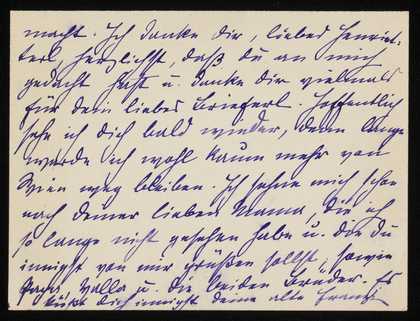 macht. Ich danke dir, liebes Henriet-
terl, herzlichst, daß du an mich
gedacht hast u. danke dir vielmals
für dein liebes Brieferl. Hoffentlich
sehe ich dich bald wieder, denn lange
werde ich wohl kaum mehr von
Wien weg bleiben. Ich sehne mich schon
nach deiner lieben Mama, die ich
so lange nicht gesehen habe u. die du
innigst von mir grüßen sollst, sowie
Papa, u. die beiden Brüder. Es
küßt dich innigst deine alte Franzi